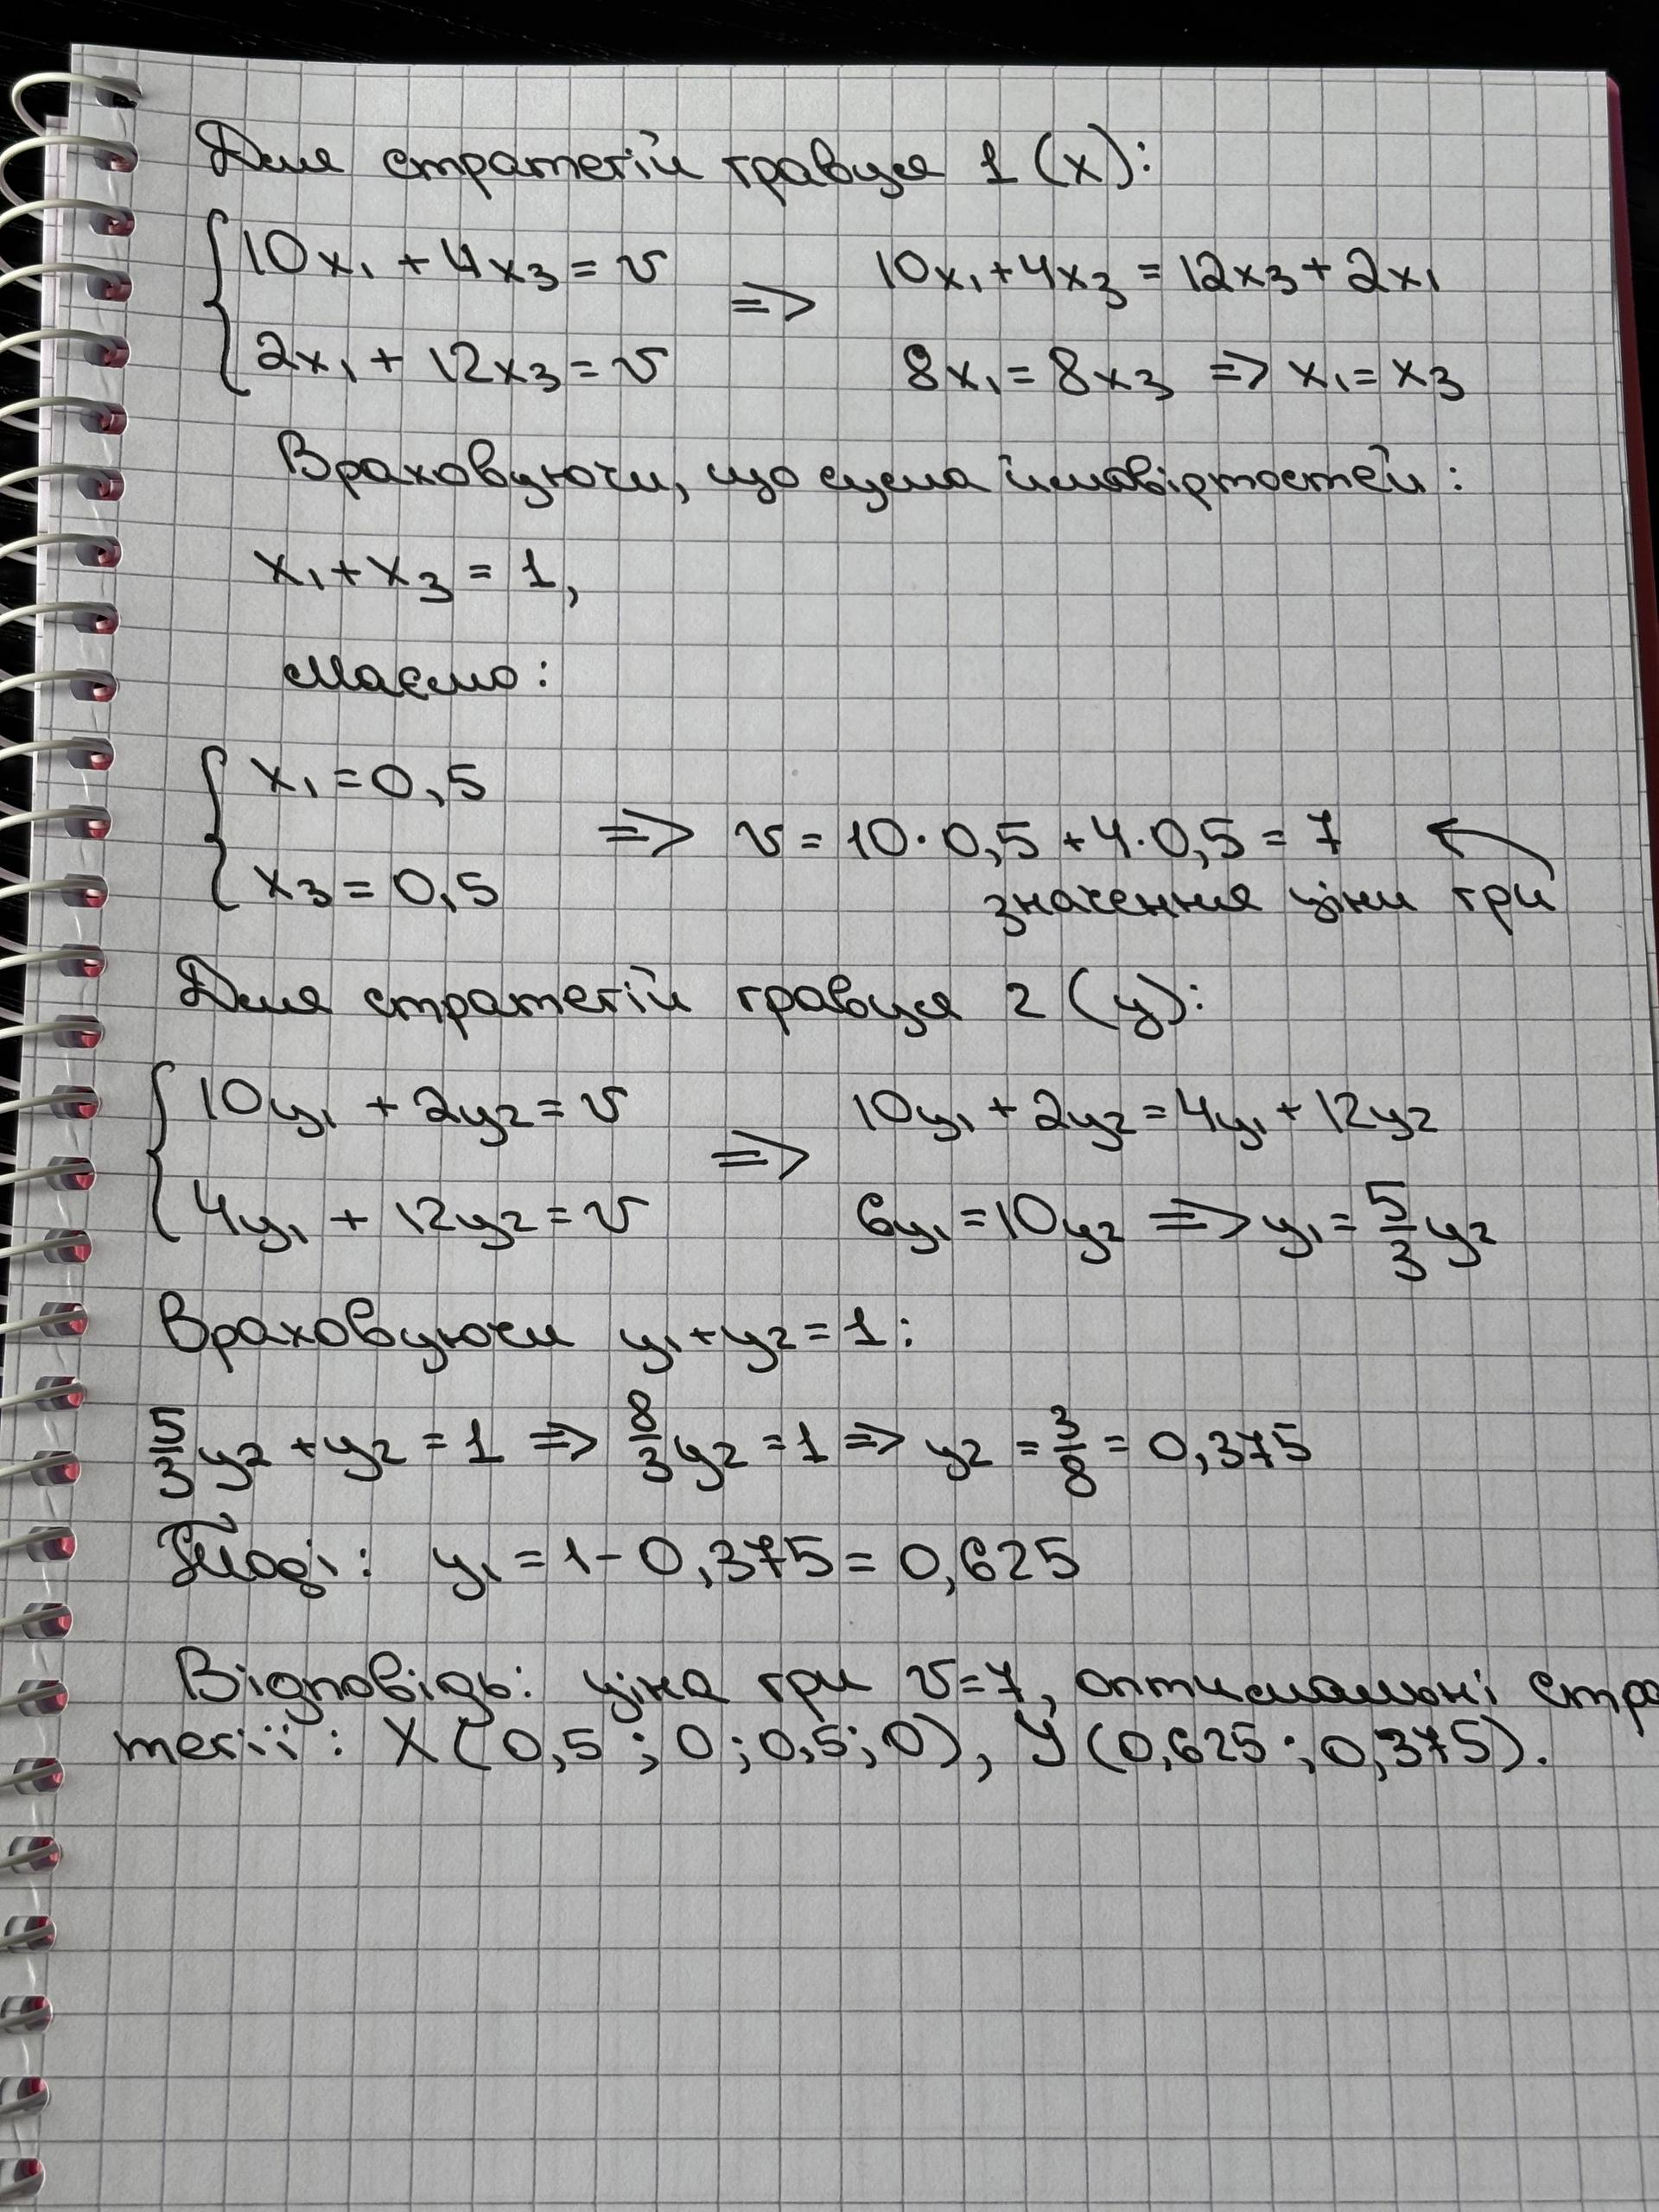 Для стратегій гравця 1 (x):
{ 10x₁ + 4x₃ = v => 10x₁ + 4x₃ = 12x₃ + 2x₁
2x₁ + 12x₃ = v 8x₁ = 8x₃ => x₁ = x₃
Враховуючи, що сума ймовірностей:
x₁ + x₃ = 1,
маємо:
{ x₁ = 0,5
x₃ = 0,5 => v = 10 · 0,5 + 4 · 0,5 = 7 ←
значення ціни гри
Для стратегій гравця 2 (y):
{ 10y₁ + 2y₂ = v => 10y₁ + 2y₂ = 4y₁ + 12y₂
4y₁ + 12y₂ = v 6y₁ = 10y₂ => y₁ = 5/3 y₂
Враховуючи y₁ + y₂ = 1:
5/3 y₂ + y₂ = 1 => 8/3 y₂ = 1 => y₂ = 3/8 = 0,375
Тоді: y₁ = 1 - 0,375 = 0,625
Відповідь: ціна гри v = 7, оптимальні стра
тегії: X (0,5 ; 0 ; 0,5 ; 0), Y (0,625 ; 0,375).